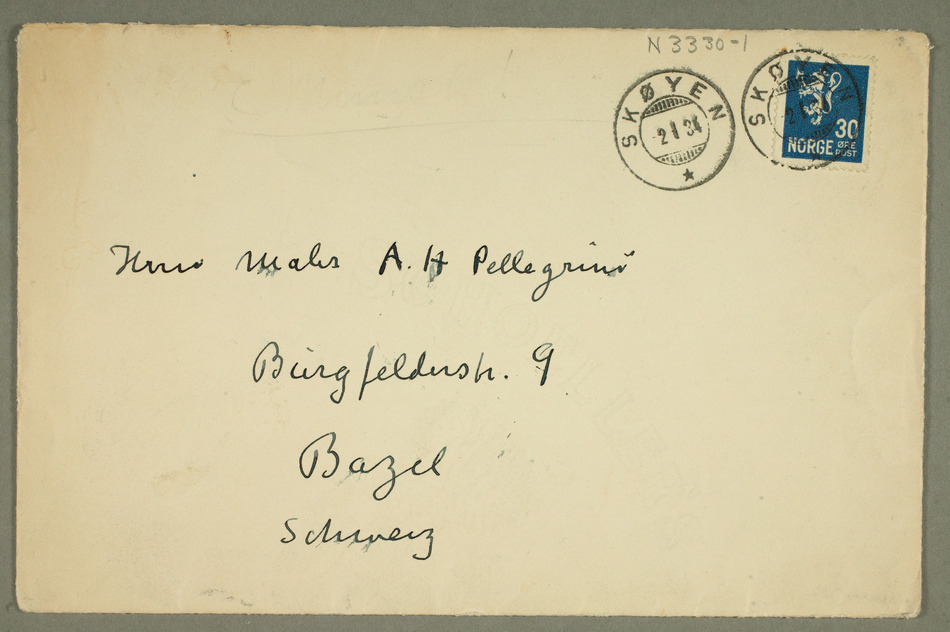 N 3330-1
SKØYEN
2 1 34
SKØYEN
30
NORGE ØRE
POST
Herrn Maler A. H Pellegrini
Burgfelderstr. 9
Bazel
Schweiz